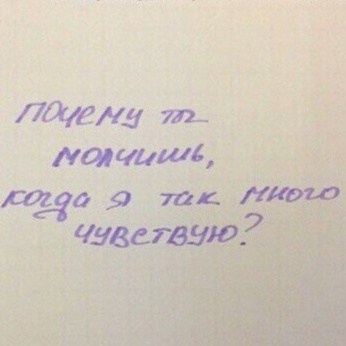 почему ты
молчишь,
когда я так много
чувствую?